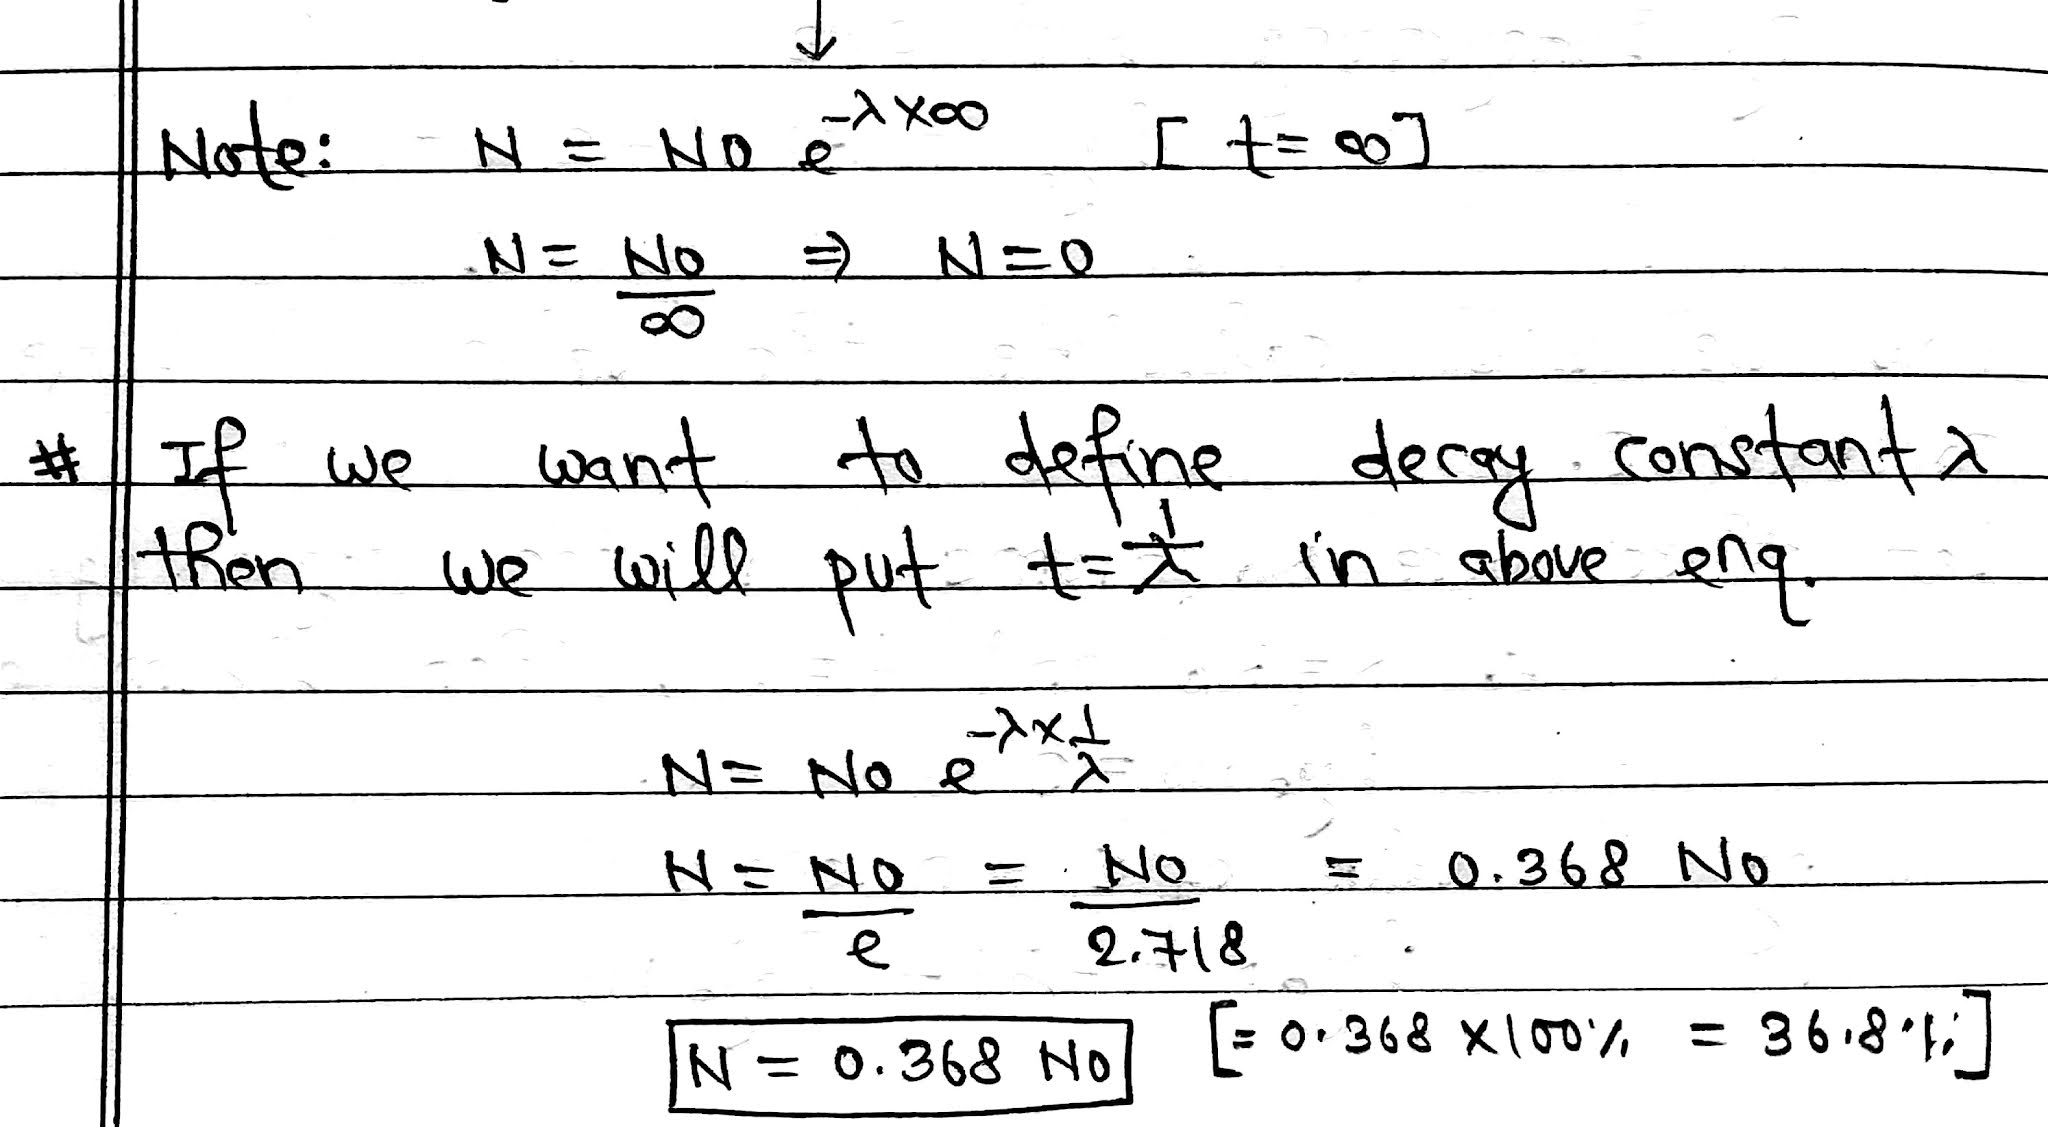 Note: N = N0 e^-λ×∞ [t=∞]
N = N0/∞ ⇒ N=0
# If we want to define decay constant λ
then we will put t=1/λ in above enq.
N= N0 e^-λ×1/λ
N = N0/e = N0/2.718 = 0.368 N0
N = 0.368 N0 [= 0.368 ×100% = 36.8%]